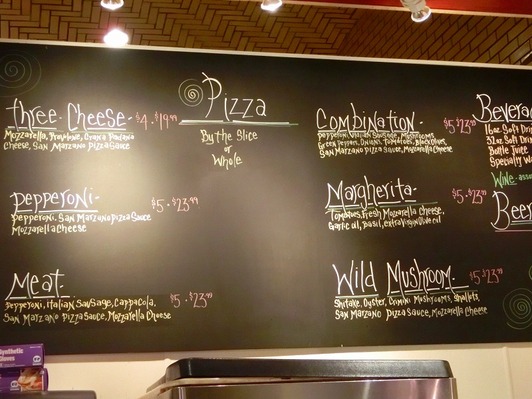 Three Cheese- $4 - $19.99
Mozzarella, Provolone, Grana Padana
Cheese, San Marzano Pizza Sauce
Pepperoni- $5 - $23.99
Pepperoni, San Marzano Pizza Sauce
Mozzarella Cheese
Meat- $5 - $23.99
Pepperoni, Italian Sausage, Cappacola,
San Marzano Pizza Sauce, Mozzarella Cheese
Pizza
By the Slice
or
Whole
Combination- $5 $23.99
Pepperoni, Italian Sausage, Mushrooms,
Green Peppers, Onions, Tomatoes, Black Olives,
San Marzano Pizza Sauce, Mozzarella Cheese
Margherita- $5 - $23.99
Tomatoes, Fresh Mozzarella Cheese,
Garlic oil, Basil, extra Virgin Olive oil
Wild Mushroom- $5 - $23.99
Shitake, Oyster, Crimini Mushrooms, Shallots,
San Marzano Pizza Sauce, Mozzarella Cheese
Bevera
16oz Soft Dr
32oz Soft Drin
Bottle Juice
Specialty
Wine- asso
Beer
Synthetic
Gloves